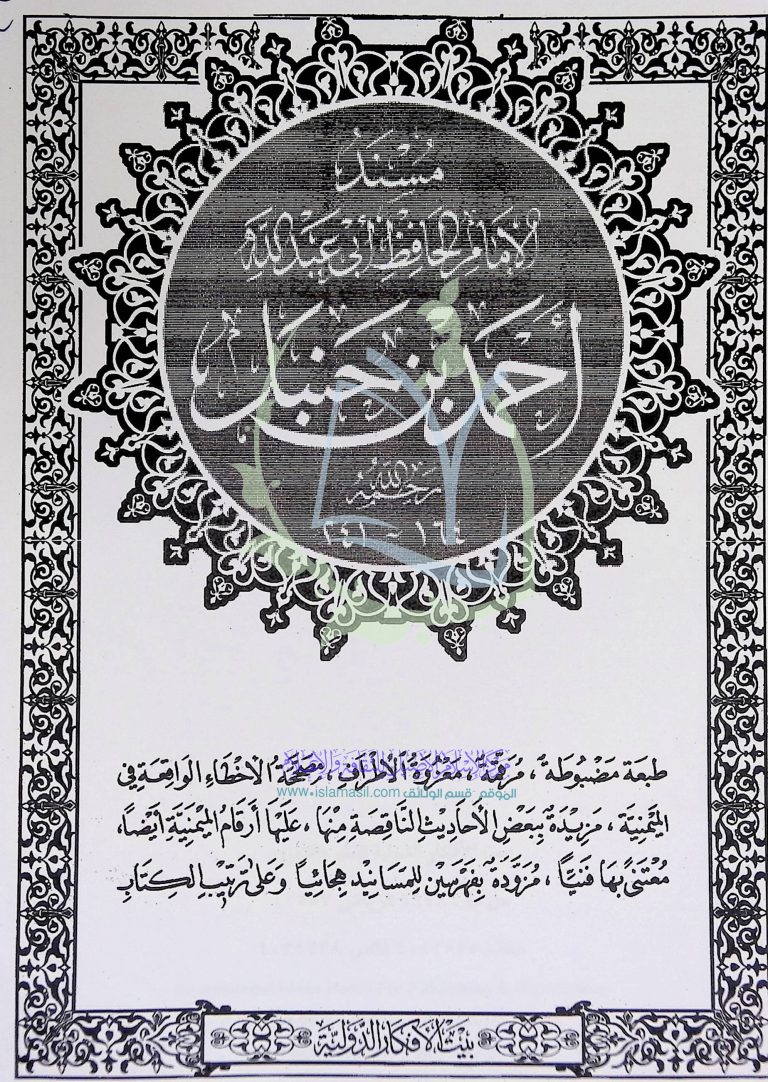 مُسْنَدُ
الإمَامِ الحَافِظِ أبي عَبْدِ اللهِ
أحمَد بن حَنبَل
رَحِمَهُ اللهُ
١٦٤ - ٢٤١
طبعَة مَضبُوطَة ، مُرقَّمَة ، مَعْزُوَّةُ الأطراف ، مصَحَّحَةُ الأخطَاءِ الوَاقعَة في
الميمَنِيَّة ، مَزِيدَةٌ بِبَعضِ الأحَاديثِ النَّاقِصَةِ مِنهَا ، عَلَيْهَا أرقَام الميمَنيَّة أيضًا،
مُعْتَنىً بهَا فَنيّاً ، مُزَوَّدَة بِفَهْرَسَين لِلمَسَانيد هِجَائيًا وَعَلى تَرتيْبِ الكِتَابِ
الموقع - قسم الوثائق www.islamasil.com
بَيتُ الأفكار الدَّوليَّة